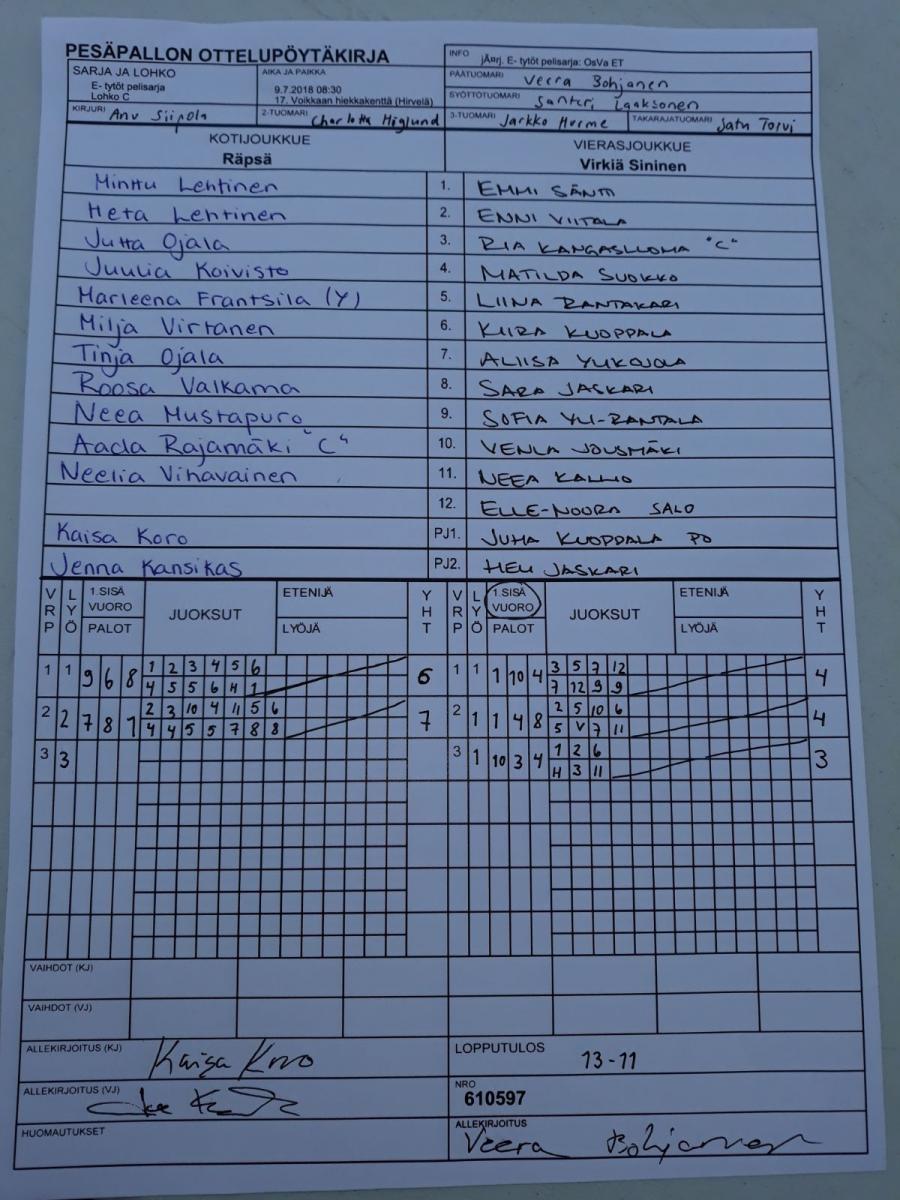 PESÄPALLON OTTELUPÖYTÄKIRJA
INFO
jÄrrj. E- tytöt pelisarja: OsVa ET
SARJA JA LOHKO
E- tytöt pelisarja
Lohko C
AIKA JA PAIKKA
9.7.2018 08:30
17. Voikkaan hiekkakenttä (Hirvelä)
PÄÄTUOMARI Veera Bohjanen
SYÖTTÖTUOMARI Santeri Laaksonen
KIRJURI Anu Siipola
2-TUOMARI Charlotta Höglund
3-TUOMARI Jarkko Hurme
TAKARAJATUOMARI Satu Torvi
KOTIJOUKKUE
Räpsä
VIERASJOUKKUE
Virkiä Sininen
Minttu Lehtinen 1. EMMI SÄNTTI
Heta Lehtinen 2. ENNI VIITALA
Jutta Ojala 3. RIA KANGASLUOMA "C"
Juulia Koivisto 4. MATILDA SUOKKO
Marleena Frantsila (Y) 5. LIINA RANTAKARI
Milja Virtanen 6. KIIRA KUOPPALA
Tinja Ojala 7. ALIISA YLIKOJOLA
Roosa Valkama 8. SARA JASKARI
Neea Mustapuro 9. SOFIA YLI-RANTALA
Aada Rajamäki "C" 10. VENLA JOUSMÄKI
Neelia Vihavainen 11. NEEA KALLIO
12. ELLE-NOORA SALO
Kaisa Koro PJ1. JUHA KUOPPALA PO
Jenna Kansikas PJ2. HELI JASKARI
VRP LYÖ 1.SISÄ VUORO PALOT JUOKSUT ETENIJÄ LYÖJÄ YHT VRP LYÖ 1.SISÄ VUORO PALOT JUOKSUT ETENIJÄ LYÖJÄ YHT
1 1 9 6 8 1 2 3 4 5 6 6 1 1 1 10 4 3 5 7 12 4
4 5 5 6 H 1 7 12 9 9
2 2 7 8 1 2 3 10 4 11 5 6 7 2 1 1 4 8 2 5 10 6 4
4 4 5 5 7 8 8 5 V 7 11
3 3 3 1 10 3 4 1 2 6 3
H 3 11
VAIHDOT (KJ)
VAIHDOT (VJ)
ALLEKIRJOITUS (KJ) Kaisa Koro
LOPPUTULOS 13-11
ALLEKIRJOITUS (VJ)
NRO
610597
HUOMAUTUKSET
ALLEKIRJOITUS
Veera Bohjanen